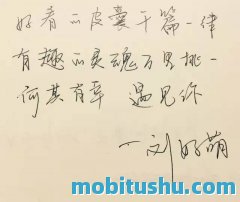 好看的皮囊千篇一律
有趣的灵魂万里挑一
何其有幸 遇见你
一刘好萌
mobitushu.com